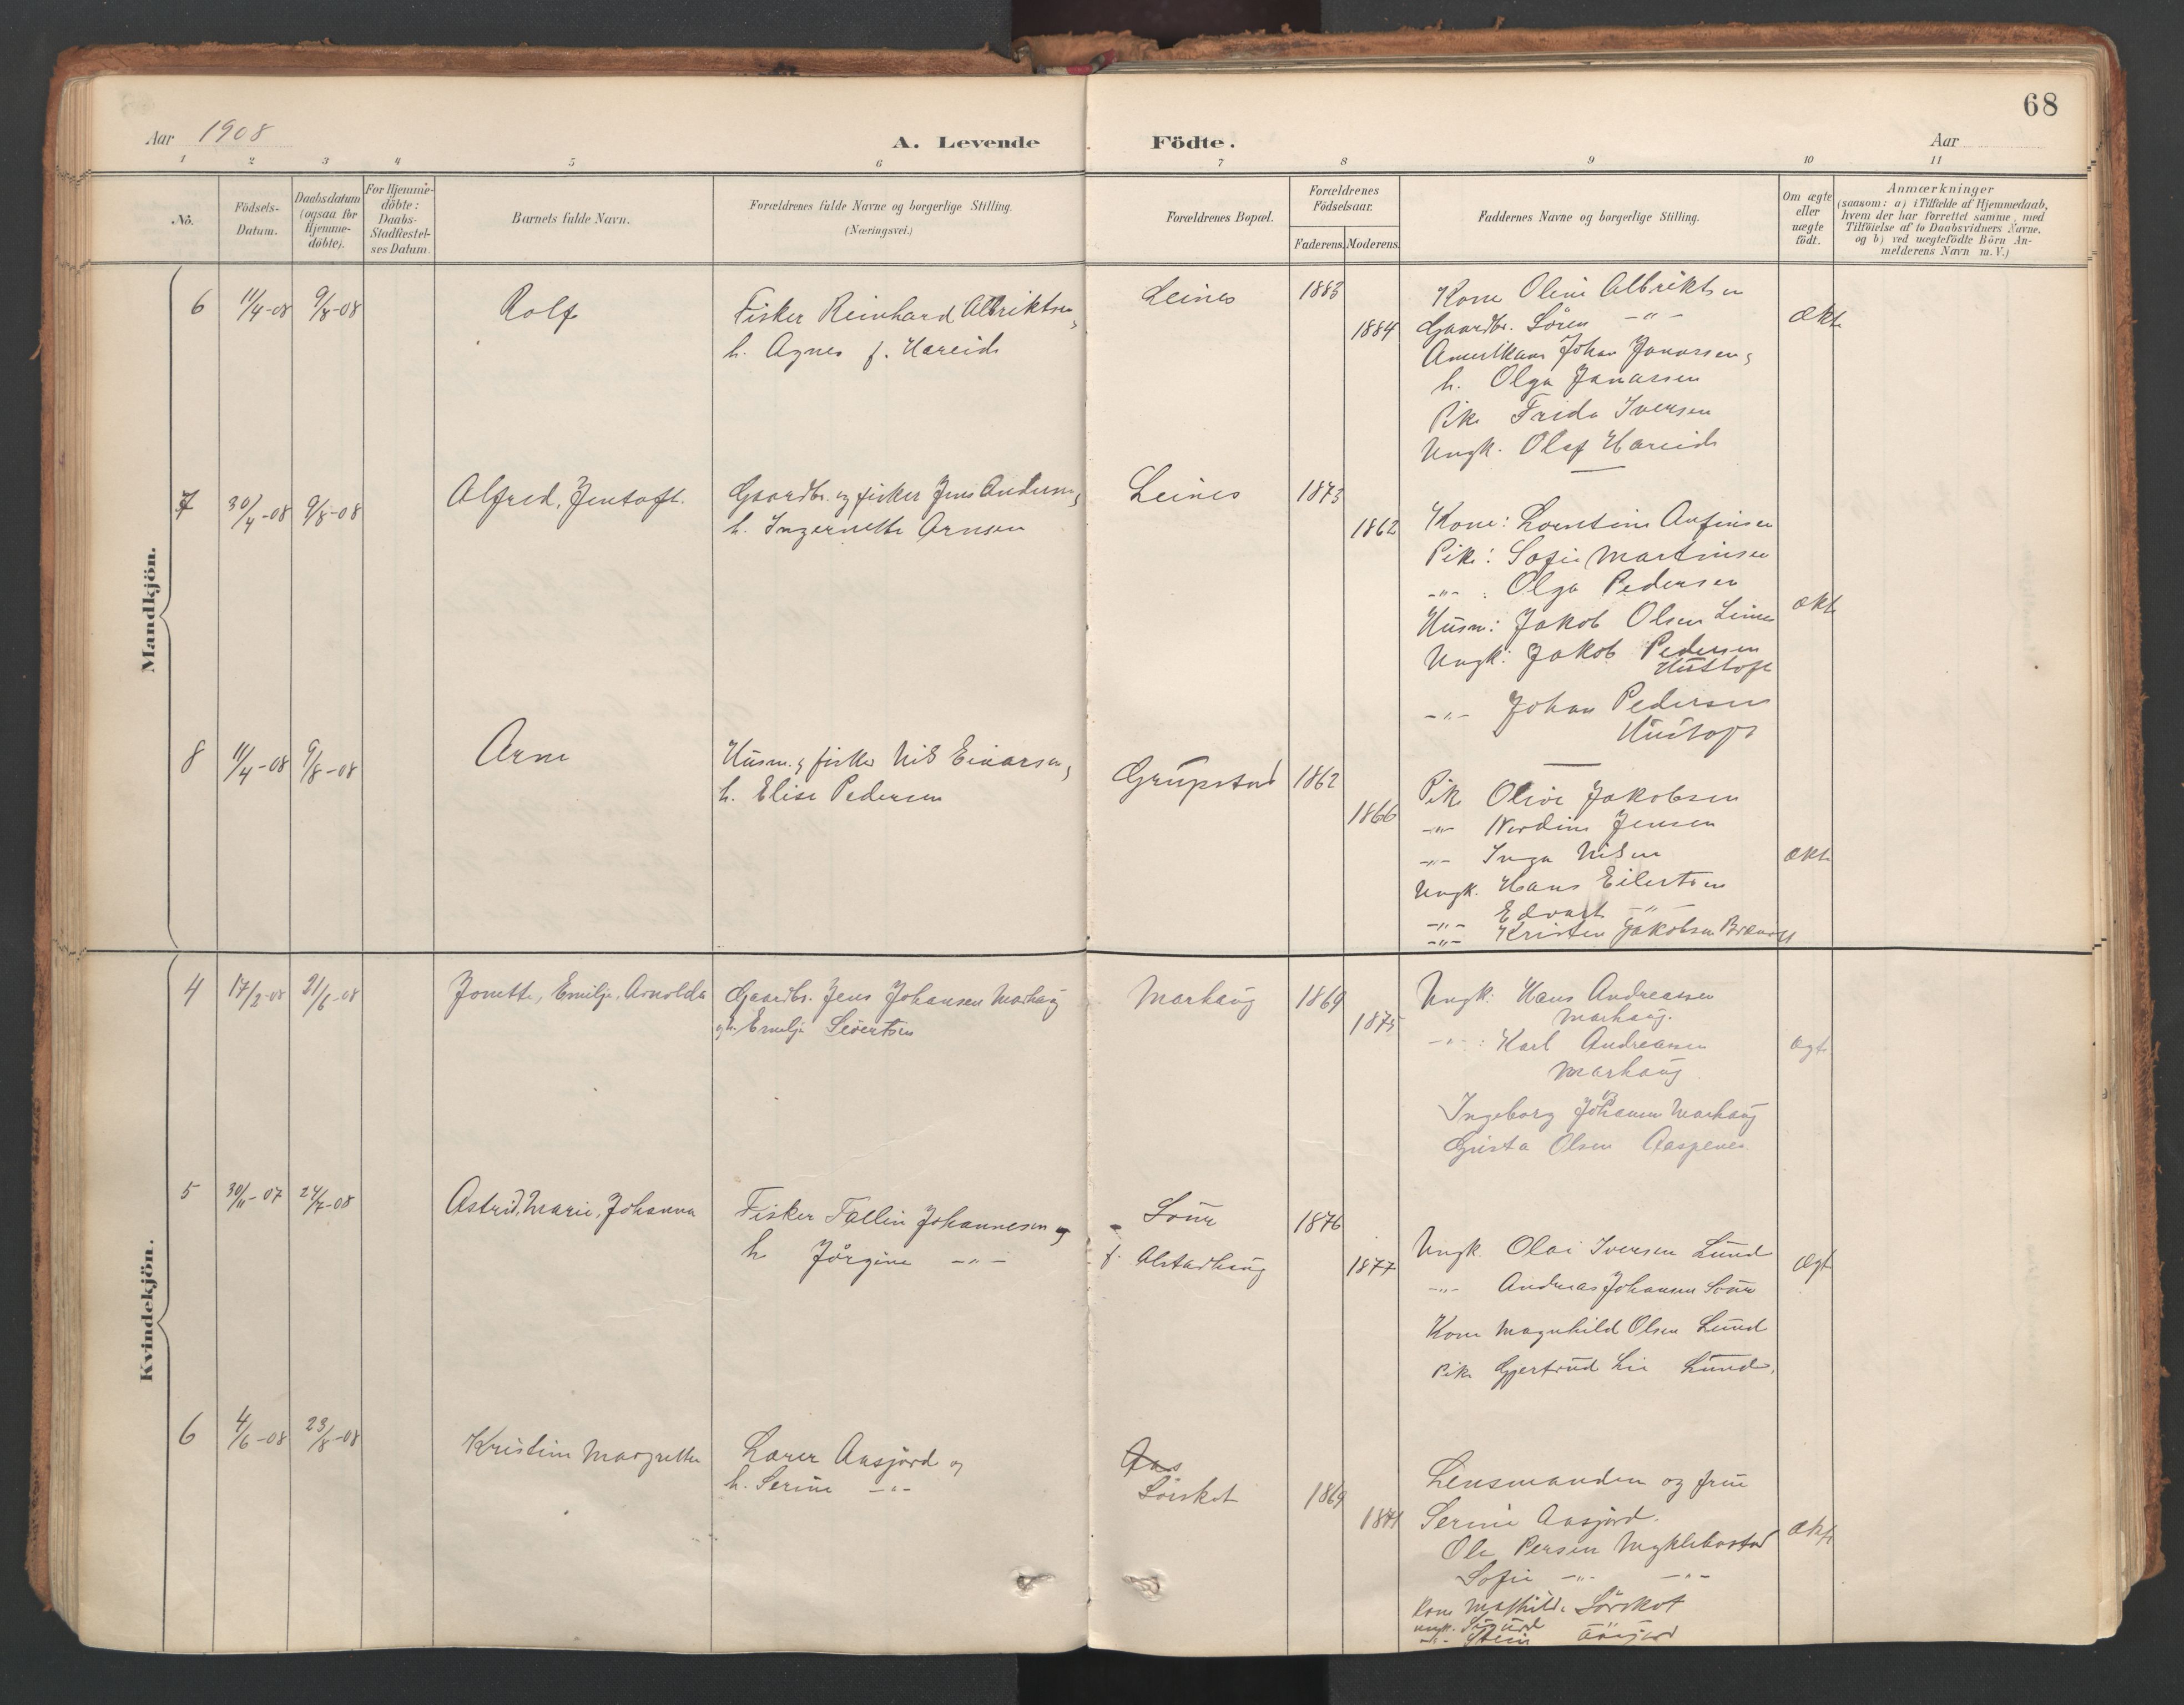 68
Aar 1908
A. Levende Födte.
Aar
1 2 3 4 5 6 7 8 9 10 11
No.
Födsels-
Datum.
Daabsdatum
(ogsaa for
Hjemme-
döbte).
For Hjemme-
döbte:
Daabs-
Stadfæstel-
ses Datum.
Barnets fulde Navn.
Forældrenes fulde Navne og borgerlige Stilling.
(Næringsvei.)
Forældrenes Bopæl.
Forældrenes
Födselsaar.
Faderens. Moderens.
Faddernes Navne og borgerlige Stilling.
Om ægte
eller
uægte
födt.
Anmærkninger
(saasom: a) i Tilfælde af Hjemmedaab,
hvem der har forrettet samme, med
Tilföielse af to Daabsvidners Navne,
og b) ved uægtefödte Börn An-
melderens Navn m. V.)
Mandkjön.
6 11/4-08 9/8-08 Rolf
Fisker Reinhard Albriktsen,
h. Agnes f. Hareide
Leines 1883
1884
Kone Oline Albriktsen
Gaardbr. Sören -"-
Amerikaner Johan Jonassen,
h. Olga Jonassen
Pike Frida Iversen
Ungk. Olaf Hareide
Ækte
7 30/4-08 9/8-08 Alfred, Jentoft.
Gaardbr. og fisker Jens Andersen,
h. Ingernette Arnsen
Leines 1873
1862
Kone: Lorentine Anfinsen
Pike: Sofie Martinsen
-"- : Olga Pedersen
Husm: Jakob Olsen Leines
Ungk: Jakob Pedersen
Hustoft
-"- Johan Pedersen
Hustoft
ækte
8 11/4-08 9/8-08 Arne
Husm. & fisker Nils Einarsen,
h. Elise Pedersen
Grupstad 1862
1866
Pike Olive Jakobsen
-"- Nordine Jensen
-"- Inga Nilsen
Ungk. Hans Eilertsen
-"- Edvart -"-
-"- Kristen Jakobsen
ækte
Kvindekjön.
4 17/2-08 21/6-08 Jonette, Emilje, Arnolda
Gaardbr. Jens Johansen Marhaug
og h. Emilje Sivertsen
Marhaug 1869
1875
Ungk: Hans Andreassen
Marhaug.
-"- : Karl Andreassen
Marhaug.
Ingeborg Johansen Marhaug
Gusta Olsen Aaspenes
ægte
5 30/11-07 24/7-08 Astrid, Marie, Johanna
Fisker Tollin Johannesen og
h. Jörgine -"-
Sour
f. Alstadhaug
1876
1877
Ungk. Olai Iversen Lund
-"- Andreas Johansen Sour
Kone Magnhild Olsen Lund
Pike Gjertrud Lie Lund.
Ægte
6 4/6-08 23/8-08 Kristine Margrethe
Lærer Aasjord og
h. Serine -"-
Aas
Sörskot
1869
1871
Lensmanden og frue
Serine Aasjord.
Ole Persen Myklebostad
Sofie -"- -"-
Kone Mathilde Sörskot
Ungk. Sigurd -"-
-"- Stein Aasjord
Ækte